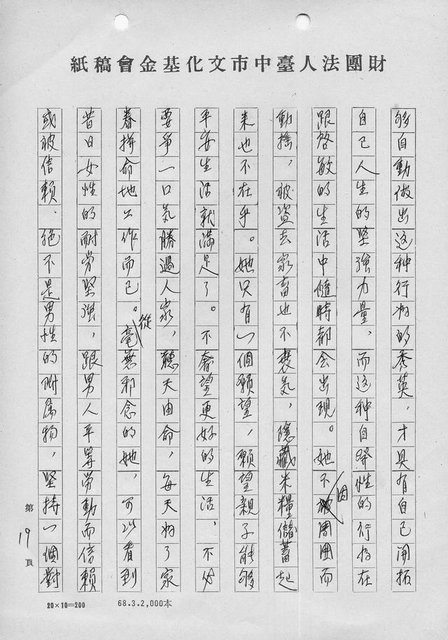 財團法人臺中市文化基金會稿紙
够自動做出这种行为的秀英，才具有自己開拓
自己人生的堅強力量，而这种自發性的行为在
跟啓敏的生活中隨時都会出現。她不因周圍而
動搖，被盗去家畜也不褱気，隱藏米糧儲蓄起
来也不在乎。她只有一個願望，願望親子能够
平安生活就満足了。不奢望更好的生活，不必
要爭一口気勝過人家，聽天由命，每天为了家
眷拼命地工作而已。從毫無邪念的她，可以看到
昔日女性的耐劳堅強，跟男人平等劳動而信賴
或被信賴，絕不是男性的附屬物，堅持一個對
第19頁
20×10=200
68.3.2,000本